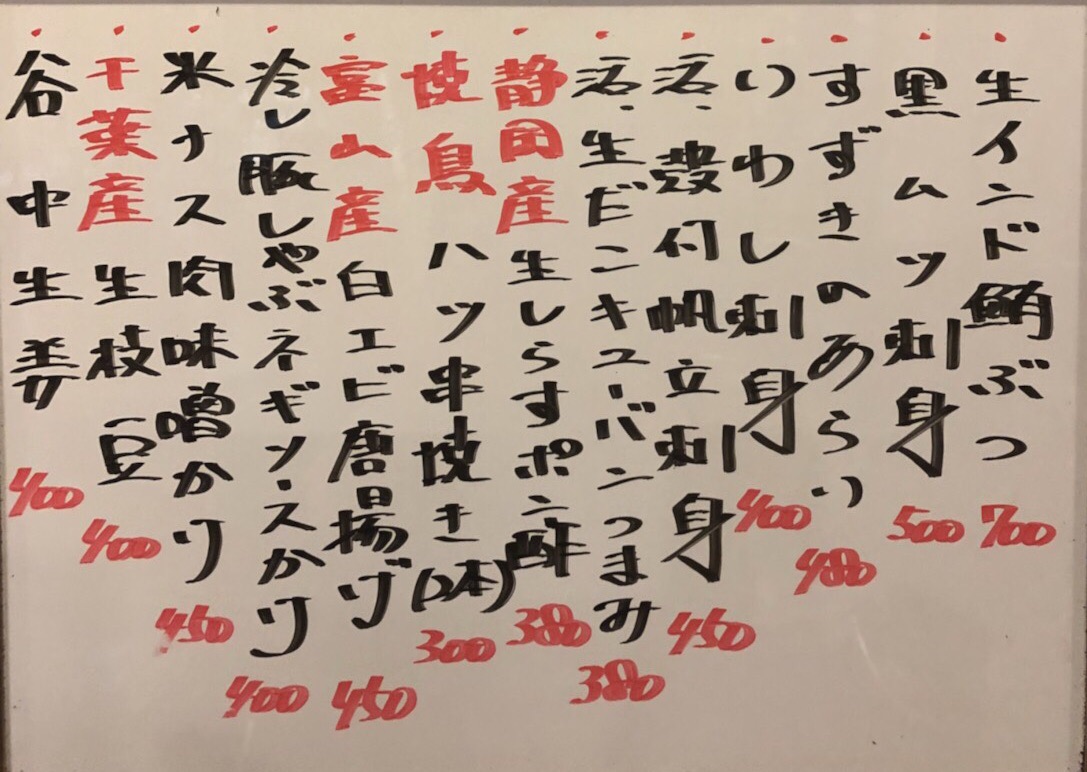 生インド鮪ぶつ 700
黒ムツ刺身 500
すずきのあらい 480
いわし刺身 400
活、殻付帆立刺身 450
活、生だこキューバンつまみ 380
静岡産 生しらすポン酢 380
焼鳥 ハツ串焼き(2本) 300
富山産 白エビ唐揚げ 450
冷し豚しゃぶネギソースかけ 400
米ナス肉味噌かけ 450
千葉産 生枝豆 400
谷中生姜 400